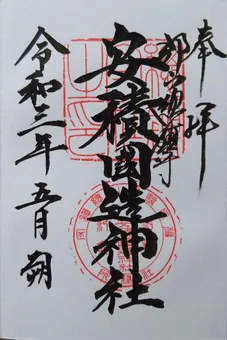 奉拝
郡山総鎮守
安積國造神社
令和三年五月朔